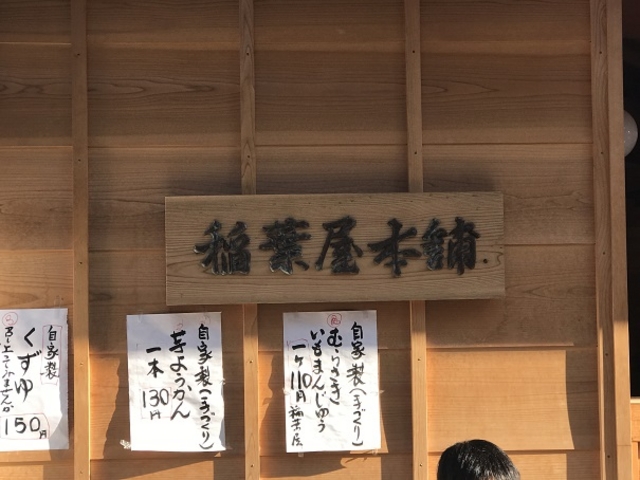 稲葉屋本舗
自家製(手づくり)
むらさき
いもまんじゅう
一ケ110円
稲葉屋
自家製(手づくり)
芋ようかん
一本 130円
自家製
くずゆ
150円